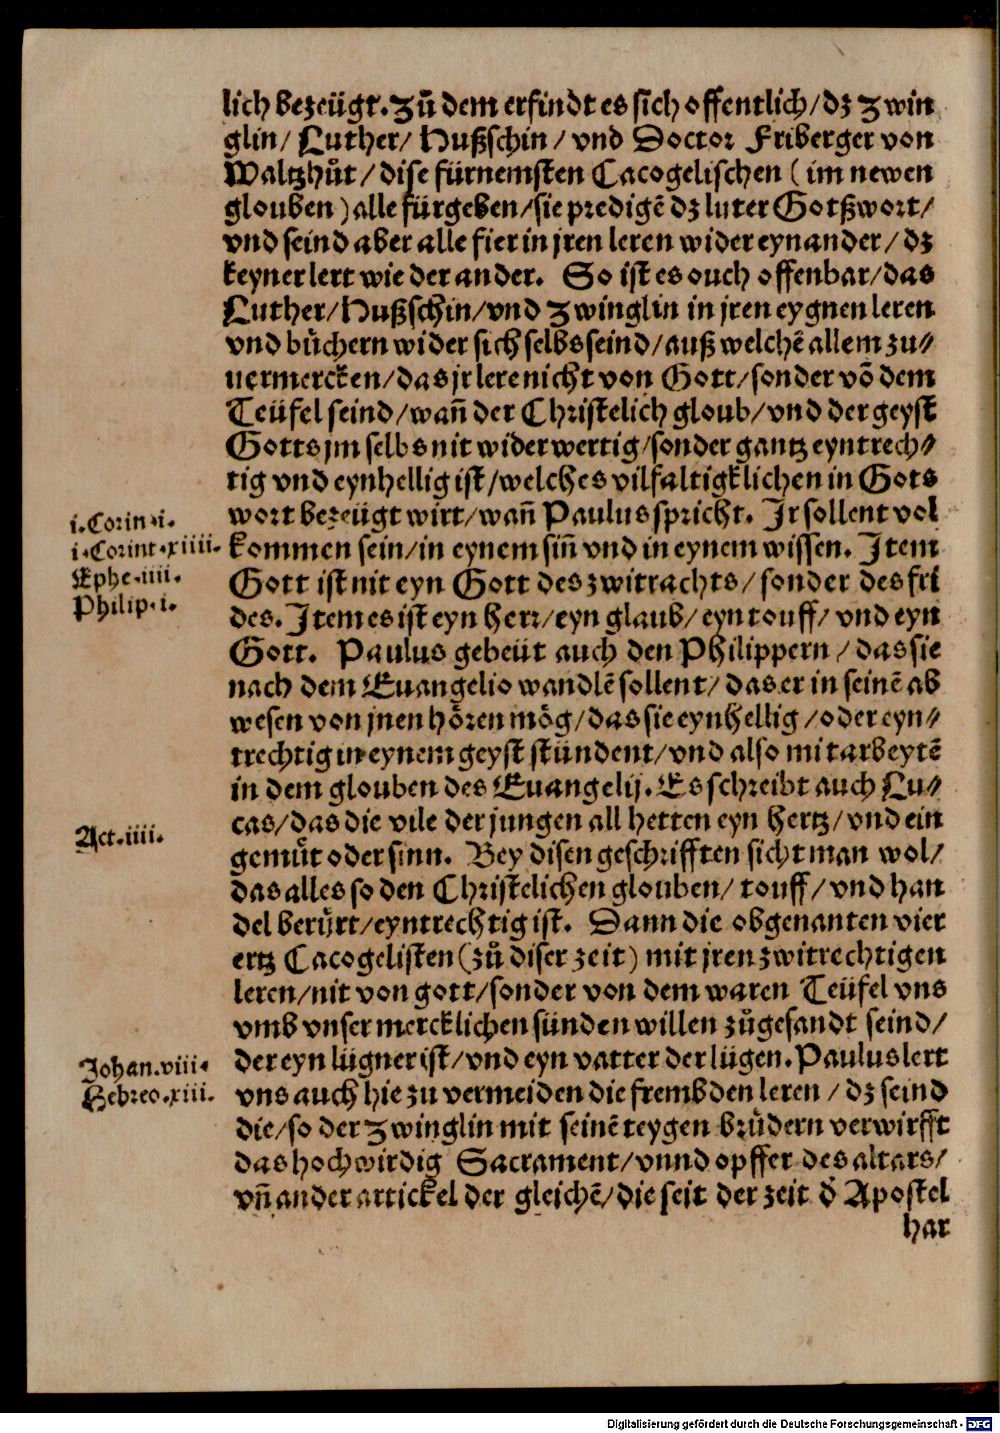 lich bezeügt. Zů dem erfindt es sich offentlich/ dz Zwin
glin/ Luther/ Hußschin/ vnd Doctor Friberger von
Waltzhůt/ dise fürnemsten Cacogelischen ( im newen
glouben ) alle fürgeben/ sie predigē dz luter Gotßwort/
vnd seind aber alle fier in jren leren wider eynander/ dz
keyner lert wie der ander. So ist es ouch offenbar/ das
Luther/ Hußschin/ vnd Zwinglin in jren eygnen leren
vnd bůchern wider sich selbs seind/ auß welchē allem zu⸗
uermercken/ das jr lere nicht von Gott/ sonder vō dem
Teüfel seind/ wañ der Christelich gloub/ vnd der geyst
Gotts jm selbs nit widerwertig/ sonder gantz eyntrech⸗
tig vnd eynhellig ist/ welches vilfaltigklichen in Gots
wort bezeügt wirt/ wañ Paulus spricht. Jr sollent vol
kommen sein/ in eynem siñ vnd in eynem wissen. Jtem
Gott ist nit eyn Gott des zwitrachts/ sonder des fri
des. Jtem es ist eyn herr/ eyn glaub/ eyn touff/ vnd eyn
Gott. Paulus gebeüt auch den Philippern / das sie
nach dem Euangelio wandlē sollent/ das er in seinē ab
wesen von jnen hören mög/ das sie eynhellig / oder eyn⸗
trechtig in eynem geyst stündent/ vnd also mitarbeytē
in dem glouben des Euangelij. Es schreibt auch Lu⸗
cas/ das die vile der jungen all hetten eyn hertz/ vnd ein
gemůt oder sinn. Bey disen geschrifften sicht man wol/
das alles so den Christelichen glouben/ touff/ vnd han
del berůrt/ eyntrechtig ist. Dann die obgenanten vier
ertz Cacogelisten (zů diser zeit) mit jren zwitrechtigen
leren/ nit von gott/ sonder von dem waren Teüfel vns
vmb vnser mercklichen sünden willen zůgesandt seind/
der eyn lügner ist/ vnd eyn vatter der lügen. Paulus lert
vns auch hie zu vermeiden die frembden leren / dz seind
die/ so der Zwinglin mit seinē teygen brůdern verwirfft
das hochwirdig Sacrament/ vnnd opffer des altars/
vñ ander artickel der gleichē/ die seit der zeit d' Apostel
har
i. Corin. i.
i. Corint. xiiii.
Ephe. iiii.
Philip. i.
Act. iiii.
Johan. viii.
Hebreo. xiii.
Digitalisierung gefördert durch die Deutsche Forschungsgemeinschaft - DFG